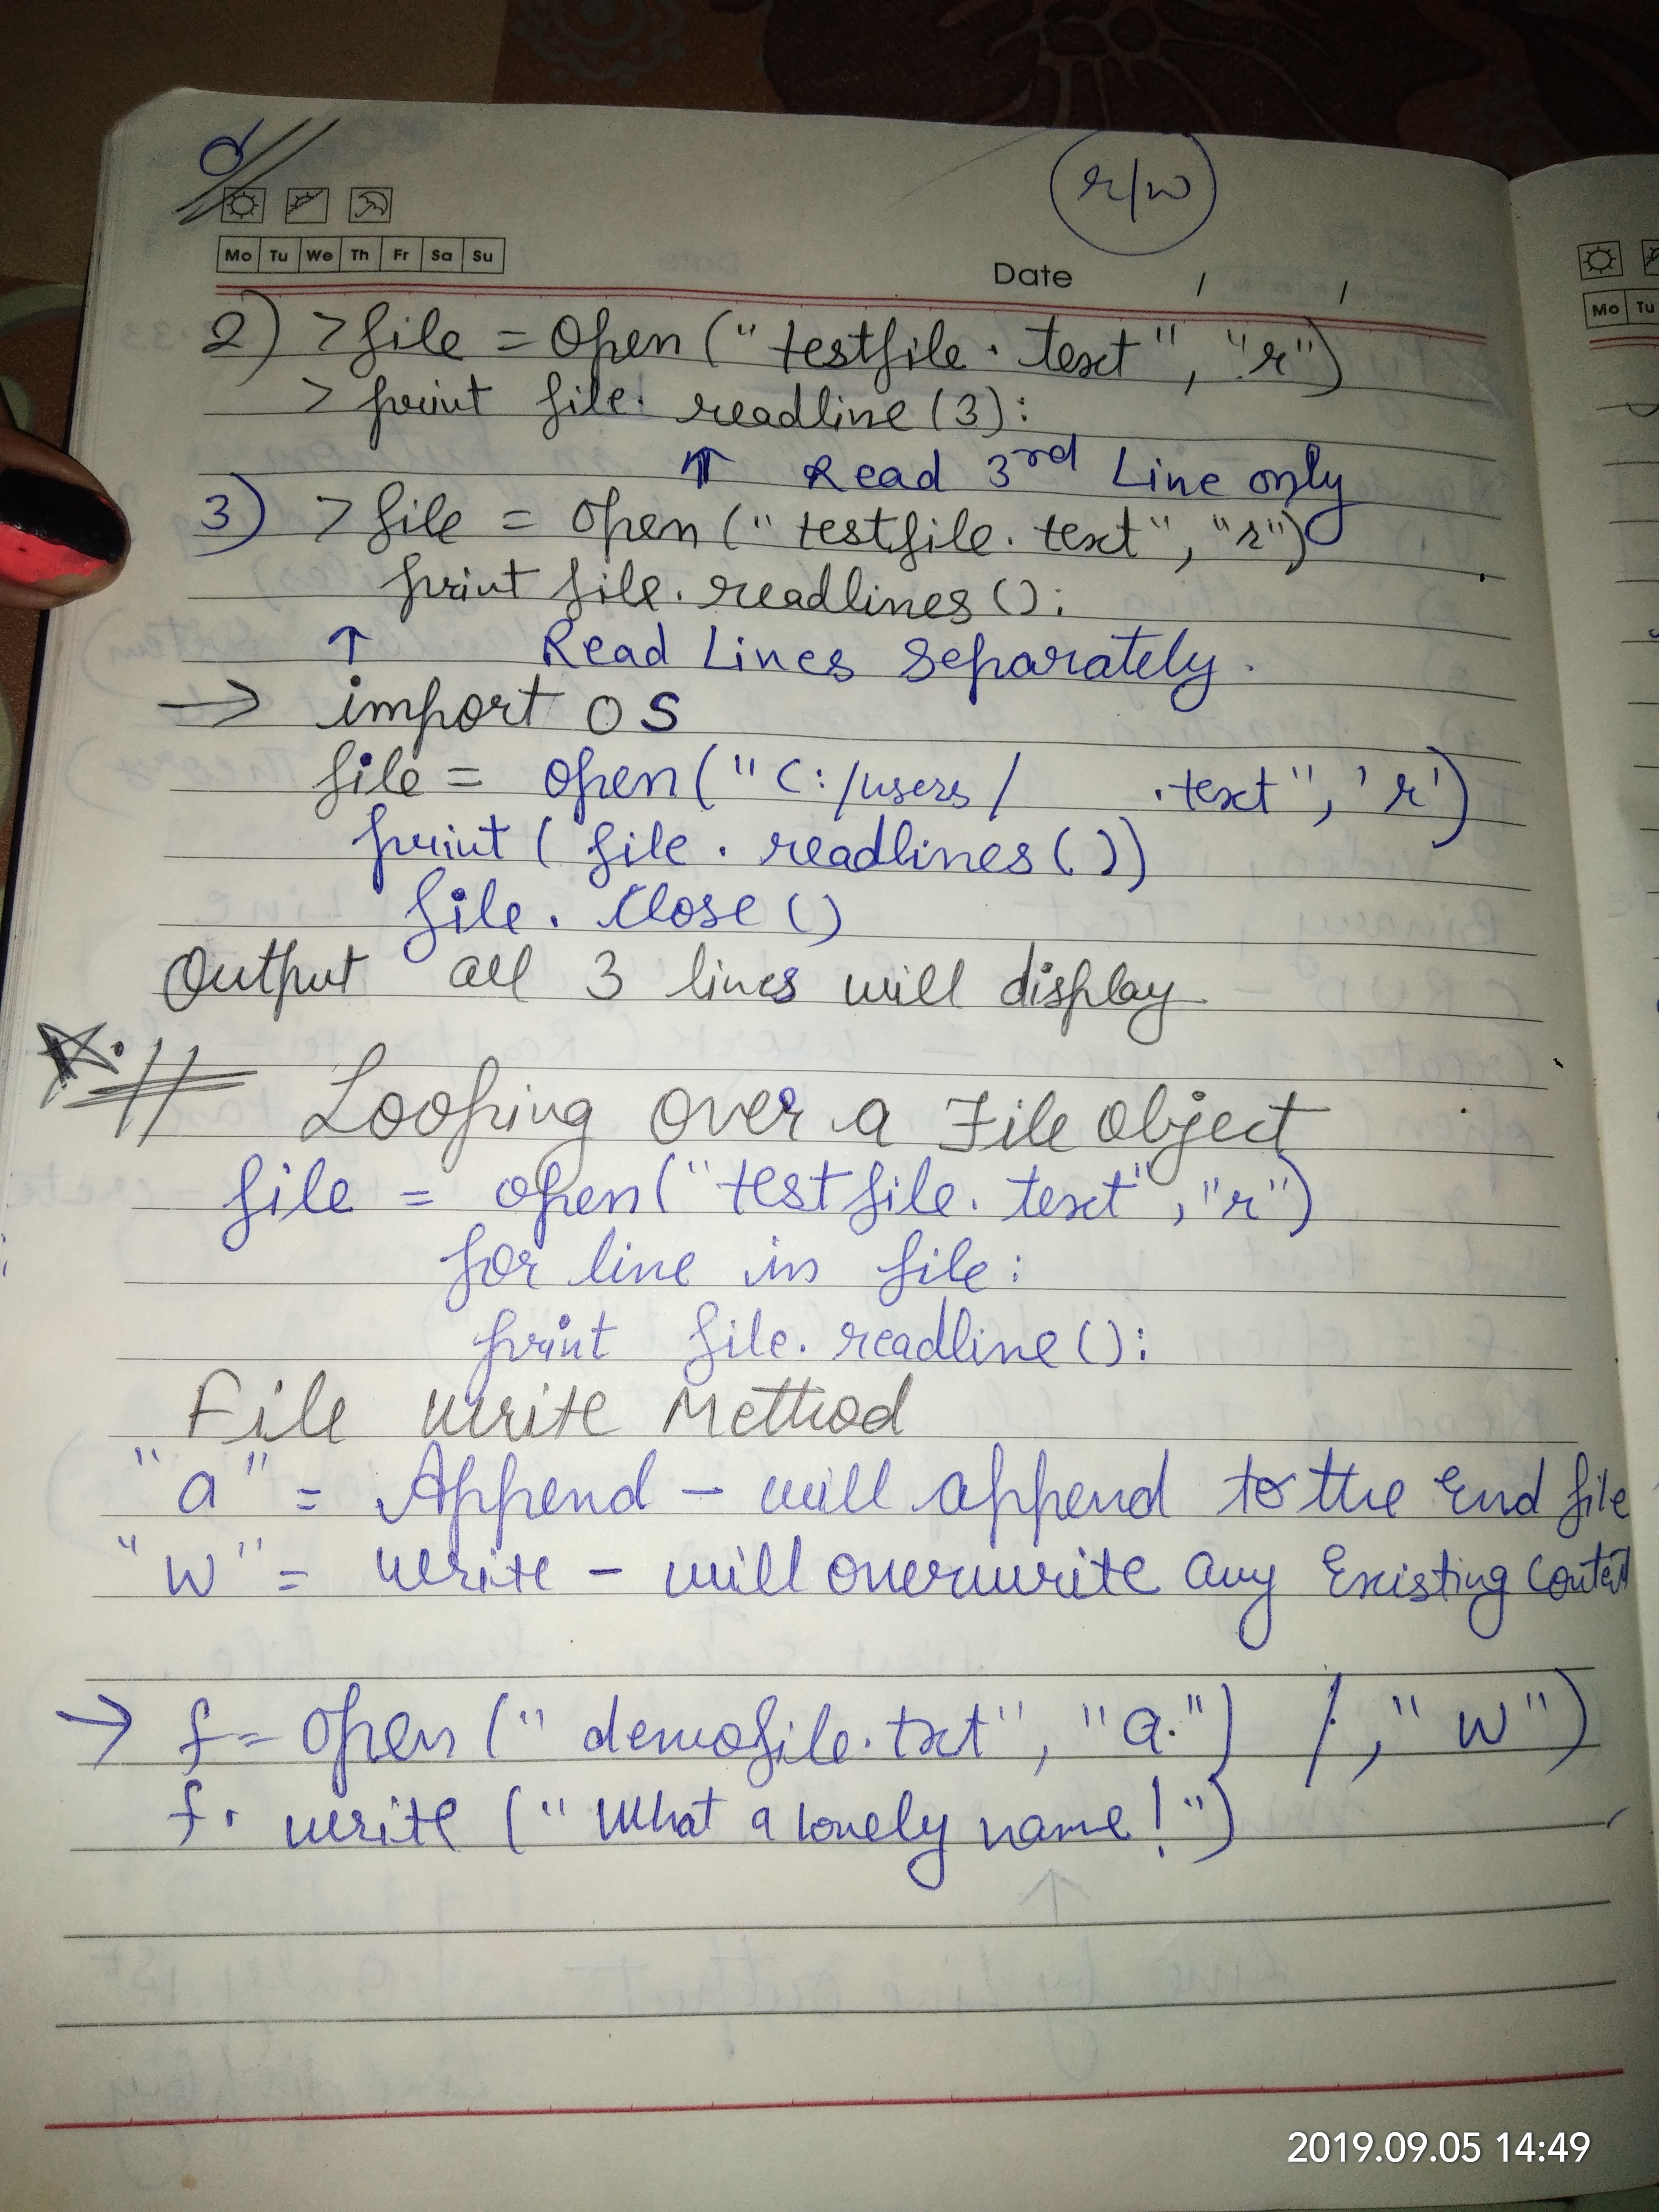 r/w
Mo Tu We Th Fr Sa Su
Date / /
2) >file = open("testfile.text", "r")
> print file. readline(3):
↑ Read 3rd Line only
3) >file = open("testfile.text", "r")
print file.readlines():
↑ Read Lines Separately.
→ import os
file = open("C:/users/ .text", 'r')
print(file.readlines())
file. Close()
Output all 3 lines will display
Looping over a File object
file = open("testfile.text", "r")
for line in file:
print file.readline():
File write Method
"a" = Append - will append to the End file
"w" = write - will overwrite any Existing Content
→ f= open("demofile.txt", "a.") / , "w")
f. write ("What a lovely name!")
Mo Tu
2019.09.05 14:49